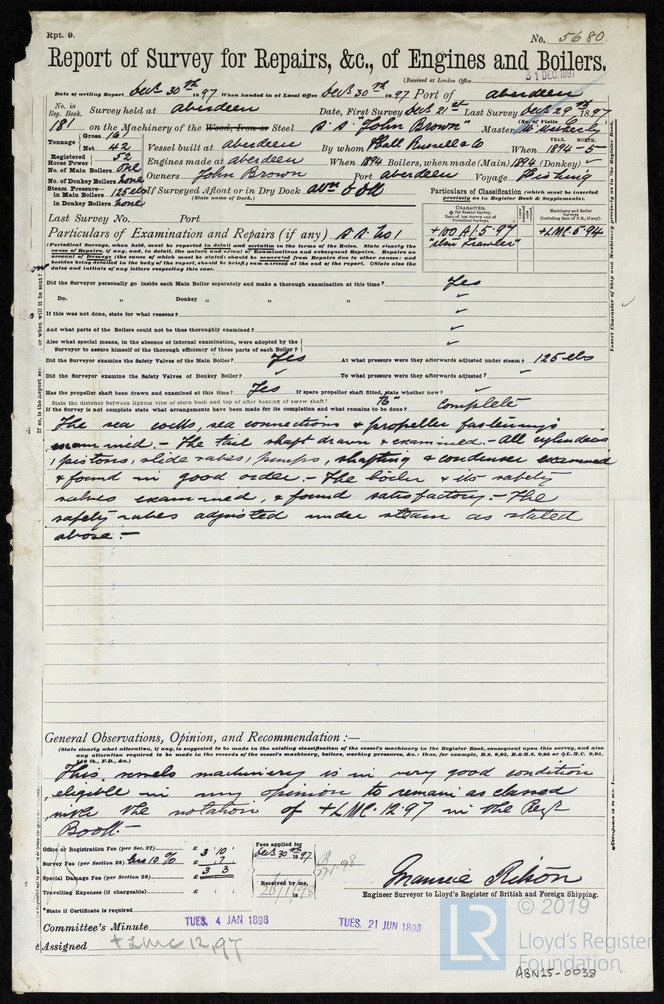 Rpt. 9.
No. 5680
Report of Survey for Repairs, &c., of Engines and Boilers.
(Received at London Office 31 DEC. 1897
Date of writing Report Decr 30th 1897 When handed in at Local Office Decr 30th 1897 Port of Aberdeen
No. in Reg. Book. Survey held at Aberdeen Date, First Survey Decr 21st Last Survey Decr 29th 1897
(No. of Visits 6)
181 on the Machinery of the Wood, Iron or Steel S.S. "John Brown" Master
Tonnage Gross 161 Net 42 Vessel built at Aberdeen By whom Hall Russell & Co When 1894-5
YEAR. MONTH.
Registered Horse Power 52 Engines made at Aberdeen When 1894 Boilers, when made (Main) 1894 (Donkey)
No. of Main Boilers One Owners John Brown Port Aberdeen Voyage Fishing
No. of Donkey Boilers None
Steam Pressure— in Main Boilers 125 lbs If Surveyed Afloat or in Dry Dock
in Donkey Boilers None (State name of Dock.)
Particulars of Classification (which must be inserted precisely as in Register Book & Supplements).
Last Survey No. Port
CHARACTER.
Machinery and Boiler Surveys
+100A1. 5.97 +LMC. 5.94
"Stm Trawler"
Particulars of Examination and Repairs (if any)
(Periodical Surveys, when held, must be reported in detail and seriatim in the terms of the Rules. State clearly the
dates and initials of any letters respecting this case.
Did the Surveyor personally go inside each Main Boiler separately and make a thorough examination at this time? Yes
Do. „ Donkey „ „ „ „
If this was not done, state for what reasons?
And what parts of the Boilers could not be thus thoroughly examined?
Also what special means, in the absence of internal examination, were adopted by the
Surveyor to assure himself of the thorough efficiency of those parts of each Boiler?
Did the Surveyor examine the Safety Valves of the Main Boiler? Yes At what pressure were they afterwards adjusted under steam? 125 lbs
Did the Surveyor examine the Safety Valves of Donkey Boiler? To what pressure were they afterwards adjusted?
Has the propeller shaft been drawn and examined at this time? Yes If spare propeller shaft fitted, state whether new?
State the distance between lignum vitæ of stern bush and top of after bearing of screw shaft?
If the Survey is not complete state what arrangements have been made for its completion and what remains to be done? Complete
The sea cocks, sea connections & propeller fastenings
examined. — The tail shaft drawn & examined. — All cylinders
, pistons, slide valves, pumps, shafting & condenser examined
& found in good order. — The boiler & its safety
valves examined, & found satisfactory. — The
safety valves adjusted under steam as stated
above. —
General Observations, Opinion, and Recommendation :—
(State clearly what alteration, if any, is suggested to be made in the existing classification of the vessel's machinery in the Register Book, consequent upon this survey, and also
any alteration required to be made in the records of the vessel's machinery, boilers, working pressures, &c.; thus, for example, B.S. 9,93, B.&M.S. 9,93 or L.M.C. 9,93,
This vessels machinery is in very good condition
, eligible in my opinion to remain as classed
with the notation of +LMC. 12.97 in the Regr
Book. —
Office or Registration Fee (per Sec. 27) £ 3 10
Fees applied for
Decr 30th 1897
Survey Fee (per Section 28) less 10% £ . 7 .
Special Damage Fee (per Section 28) £ 3 3
Received by me,
Travelling Expenses (if chargeable) £
Maurice Ritson
Engineer Surveyor to Lloyd's Register of British and Foreign Shipping.
*State if Certificate is required
Committee's Minute TUES. 4 JAN 1898 TUES. 21 JUN 1898
Assigned +LMC 12,97
© 2019
LR
Lloyd's Register
Foundation
ABN15-0038